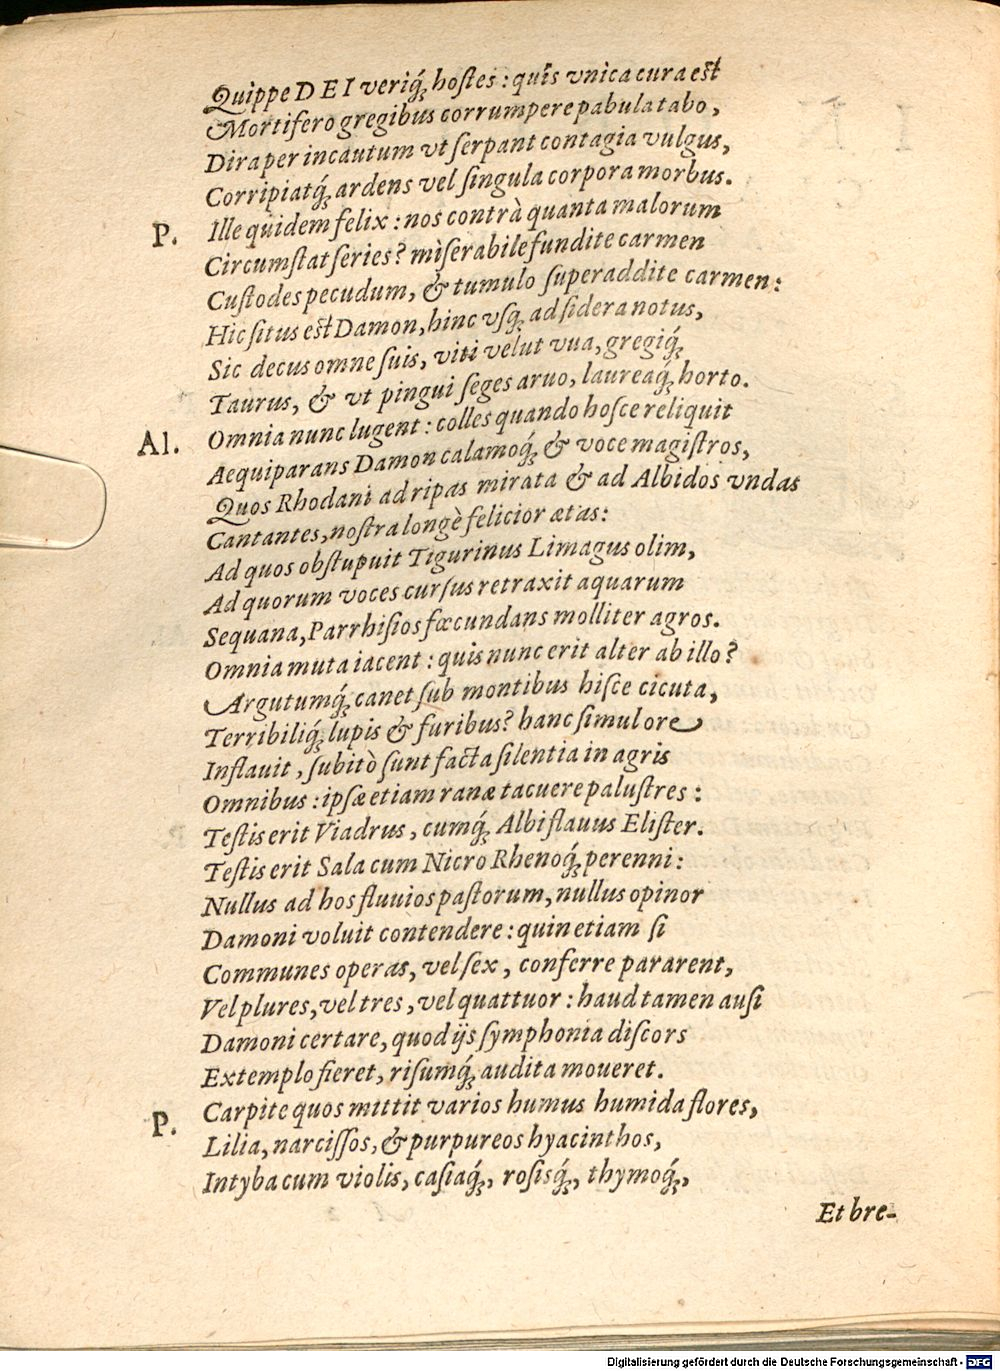 Quippe DEI veriq́ꝫ hoſtes : quîs vnica cura eſt
Mortifero gregibus corrumpere pabula tabo,
Dira per incautum vt ſerpant contagia vulgus,
Corripiatq́ꝫ ardens vel ſingula corpora morbus.
P. Ille quidem felix : nos contrà quanta malorum
Circumſtat ſeries? miſerabile fundite carmen
Cuſtodes pecudum, & tumulo ſuperaddite carmen:
Hic ſitus eſt Damon, hinc vſqꝫ ad ſidera notus,
Sic decus omne ſuis, viti velut vua, gregiq́ꝫ
Taurus, & vt pingui ſeges aruo, laureaq́ꝫ horto.
Al. Omnia nunc lugent : colles quando hoſce reliquit
Aequiparans Damon calamoq́ꝫ & voce magiſtros,
Quos Rhodani ad ripas mirata & ad Albidos vndas
Cantantes, noſtra longè felicior ætas:
Ad quos obſtupuit Tigurinus Limagus olim,
Ad quorum voces curſus retraxit aquarum
Sequana, Parrhiſios fœcundans molliter agros.
Omnia muta iacent : quis nunc erit alter ab illo?
Argutumq́ꝫ canet ſub montibus hiſce cicuta,
Terribiliq́ꝫ lupis & furibus? hanc ſimul ore
Inflauit, ſubitò ſunt facta ſilentia in agris
Omnibus : ipſæ etiam ranæ tacuere paluſtres :
Teſtis erit Viadrus, cumq́ꝫ Albi flauus Eliſter.
Teſtis erit Sala cum Nicro Rhenoq́ꝫ perenni:
Nullus ad hos fluuios paſtorum, nullus opinor
Damoni voluit contendere : quin etiam ſi
Communes operas, vel ſex, conferre pararent,
Vel plures, vel tres, vel quattuor : haud tamen auſi
Damoni certare, quod ijs ſymphonia diſcors
Extemplo fieret, riſumq́ꝫ audita moueret.
P. Carpite quos mittit varios humus humida flores,
Lilia, narciſſos, & purpureos hyacinthos,
Intyba cum violis, caſiaq́ꝫ, roſisq́ꝫ, thymoq́ꝫ,
Et bre-
Digitalisierung gefördert durch die Deutsche Forschungsgemeinschaft - DFG